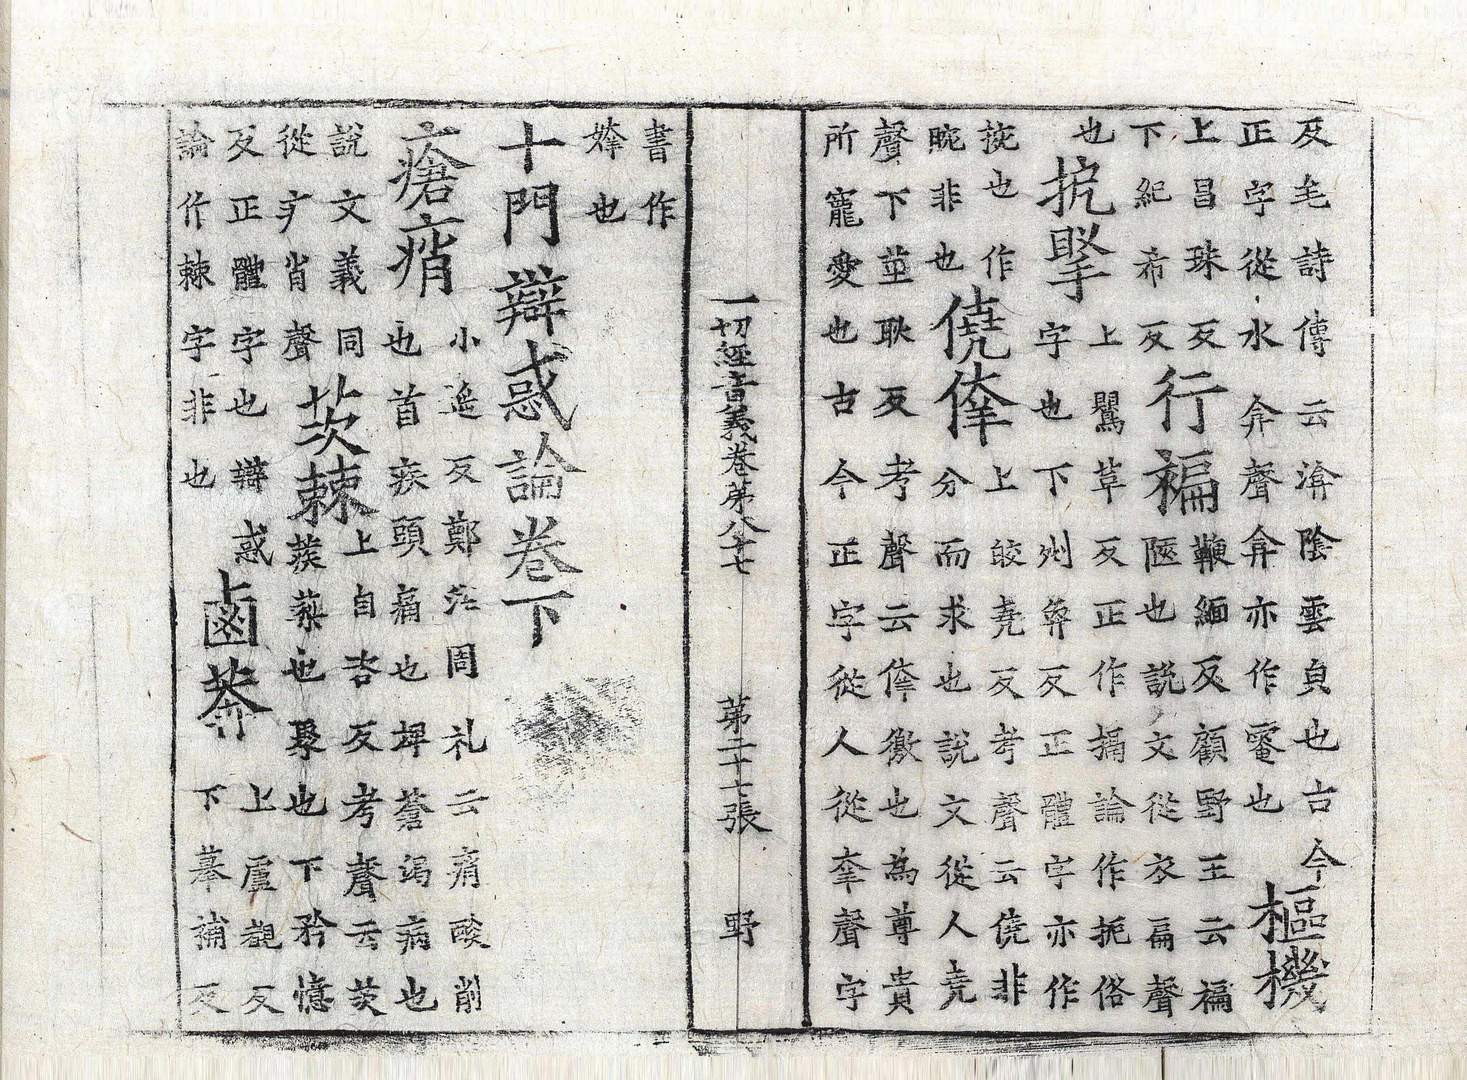 反毛詩傳云渰陰雲皃也古今
正字從水弇聲弇亦作黤也
樞機
上昌珠反
下紀希反
行褊
鞭緬反顧野王云褊
陿也說文從衣扁聲
也
扼掔
上鷖革反正作搹論作扼俗
字也下剜奐反正體字亦作
捥也作
睕非也
僥倖
上皎堯反考聲云僥非
分而求也說文從人堯
聲下莖耿反考聲云倖徼也為尊貴
所寵愛也古今正字從人從幸聲字
一切經音義卷第八十七 第二十七張 野
書作
婞也
十門辯惑論卷下
瘡痟
小遙反鄭注周礼云痟酸削
也首疾頭痛也埤蒼渴病也
說文義同
從疒肖聲
茨棘
上自咨反考聲云茨
蒺蔾也聚也下矜憶
反正體字也辯惑
論作棘字非也
鹵莽
上盧覩反
下摹補反